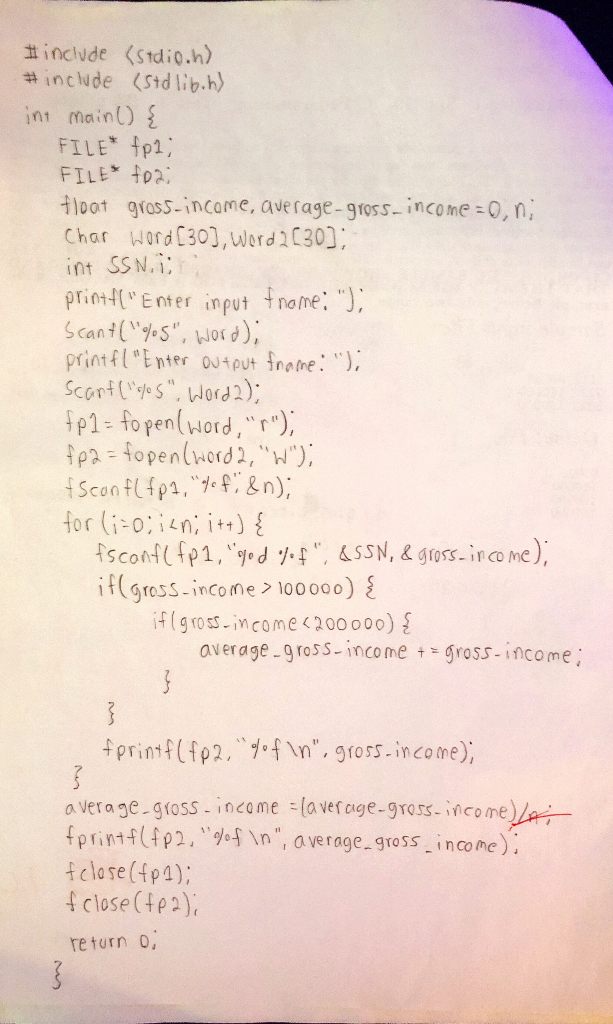 #include <stdio.h>
#include <stdlib.h>
int main() {
FILE* fp1;
FILE* fp2;
float gross_income, average_gross_income=0, n;
Char word[30], word2[30];
int SSN, i;
printf("Enter input fname: ");
Scanf("%s", word);
printf("Enter output fname: ");
Scanf("%s", word2);
fp1 = fopen(word, "r");
fp2 = fopen(word2, "w");
fscanf(fp1, "%f", &n);
for (i=0; i<n; i++) {
fscanf(fp1, "%d %f", &SSN, &gross_income);
if(gross_income > 100000) {
if(gross_income < 200000) {
average_gross_income += gross_income;
}
}
fprintf(fp2, "%f \n", gross_income);
}
average_gross_income = (average_gross_income)/n;
fprintf(fp2, "%f \n", average_gross_income);
fclose(fp1);
fclose(fp2);
return 0;
}